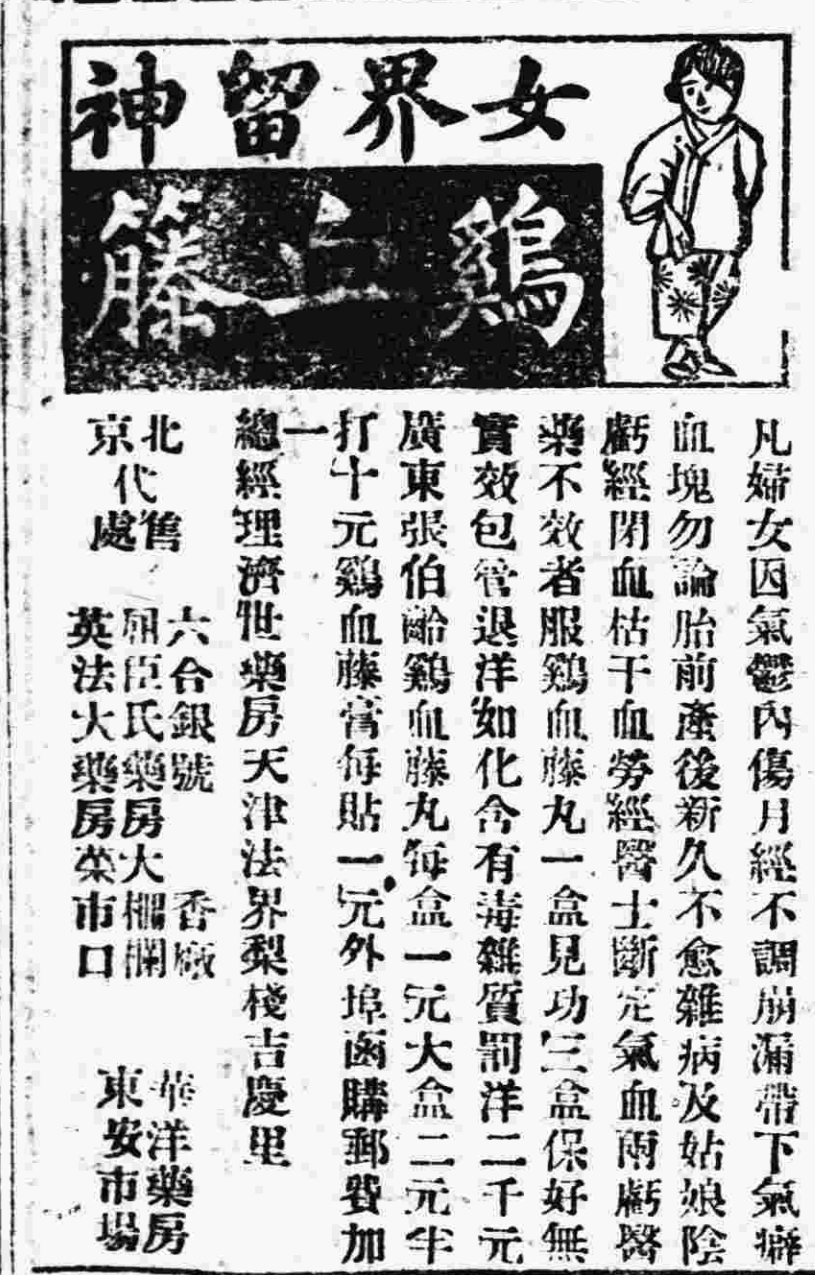 女界留神
鷄血籐
凡婦女因氣鬱內傷月經不調崩漏帶下氣癖
血塊勿論胎前產後新久不愈雜病及姑娘陰
虧經閉血枯干血勞經醫士斷定氣血兩虧醫
藥不效者服鷄血藤丸一盒見功三盒保好無
實效包管退洋如化含有毒雜質罰洋二千元
廣東張伯齡鷄血藤丸每盒一元大盒二元半
打十元鷄血藤膏每貼一元外埠函購郵費加
一
總經理濟世藥房天津法界梨棧吉慶里
北京代售處
六合銀號 香廠
屈臣氏藥房大柵欄
英法大藥房菜市口
華洋藥房
東安市場